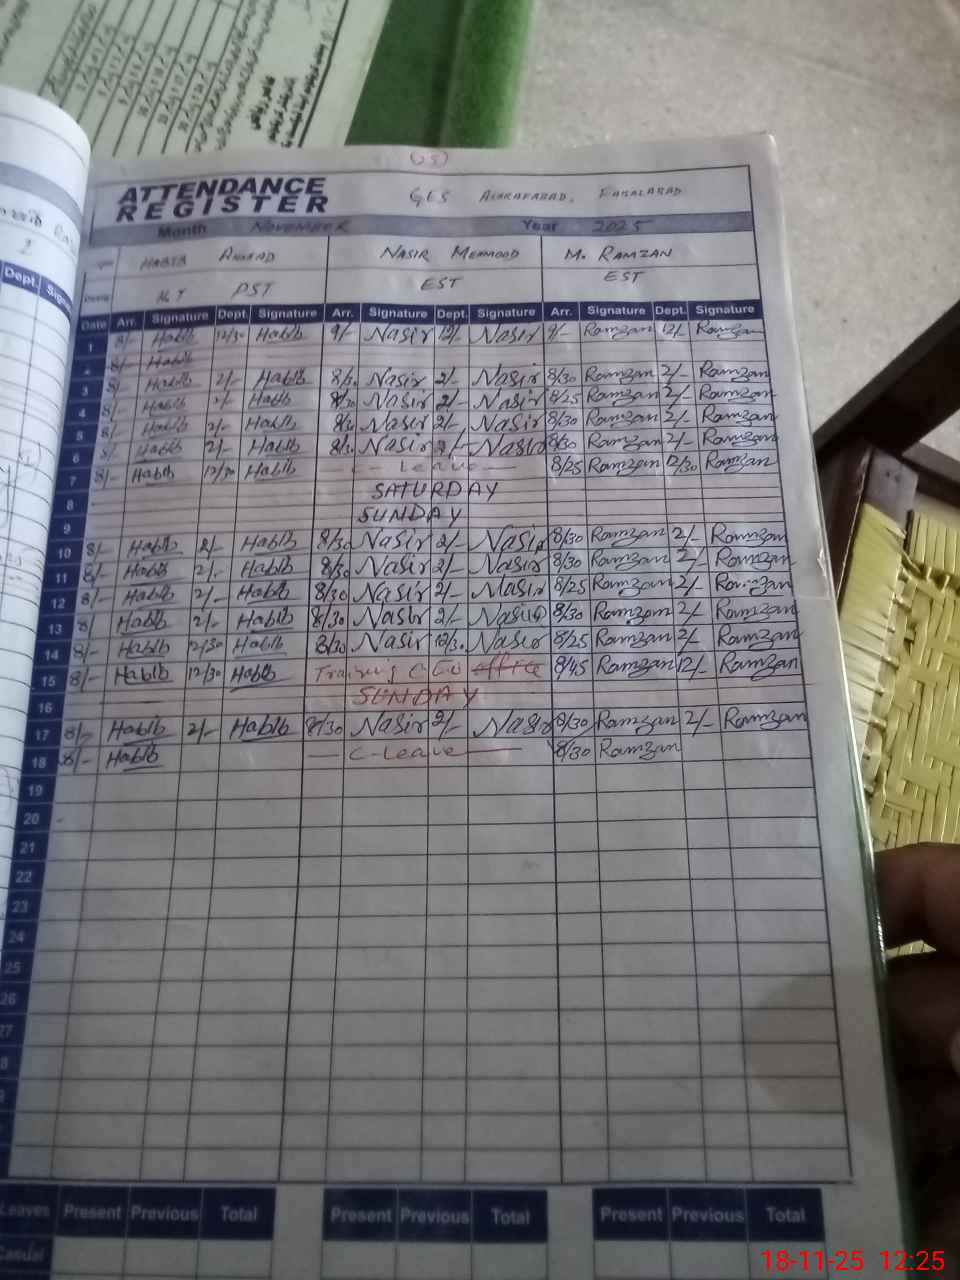 ATTENDANCE
REGISTER
GES ASHRAFABAD, FAISALABAD
Month NOVEMBER Year 2025
HABIB AHMAD NASIR MEHMOOD M. RAMZAN
PST EST EST
Date Arr. Signature Dept. Signature Arr. Signature Dept. Signature Arr. Signature Dept. Signature
1 8/- Habib 12/30 Habib 9/- Nasir 12/- Nasir 9/- Ramzan 12/- Ramzan
2 8/- Habib
3 8/- Habib 2/- Habib 8/30 Nasir 2/- Nasir 8/30 Ramzan 2/- Ramzan
4 8/- Habib 2/- Habib 8/30 Nasir 2/- Nasir 8/25 Ramzan 2/- Ramzan
5 8/- Habib 2/- Habib 8/30 Nasir 2/- Nasir 8/30 Ramzan 2/- Ramzan
6 8/- Habib 2/- Habib 8/30 Nasir 2/- Nasir 8/30 Ramzan 2/- Ramzan
7 8/- Habib 12/30 Habib C- Leave 8/25 Ramzan 12/30 Ramzan
8 SATURDAY
9 SUNDAY
10 8/- Habib 2/- Habib 8/30 Nasir 2/- Nasir 8/30 Ramzan 2/- Ramzan
11 8/- Habib 2/- Habib 8/30 Nasir 2/- Nasir 8/30 Ramzan 2/- Ramzan
12 8/- Habib 2/- Habib 8/30 Nasir 2/- Nasir 8/25 Ramzan 2/- Ramzan
13 8/ Habib 2/- Habib 8/30 Nasir 2/- Nasir 8/30 Ramzan 2/- Ramzan
14 8/- Habib 12/30 Habib 8/30 Nasir 12/30 Nasir 8/25 Ramzan 2/- Ramzan
15 8/- Habib 12/30 Habib Training CEO office 8/45 Ramzan 12/- Ramzan
16 SUNDAY
17 8/- Habib 2/- Habib 8/30 Nasir 2/- Nasir 8/30 Ramzan 2/- Ramzan
18 8/- Habib C-Leave 8/30 Ramzan
19
20
21
22
23
24
25
26
27
8
Leaves Present Previous Total Present Previous Total Present Previous Total
Casual
Dept.
18-11-25 12:25